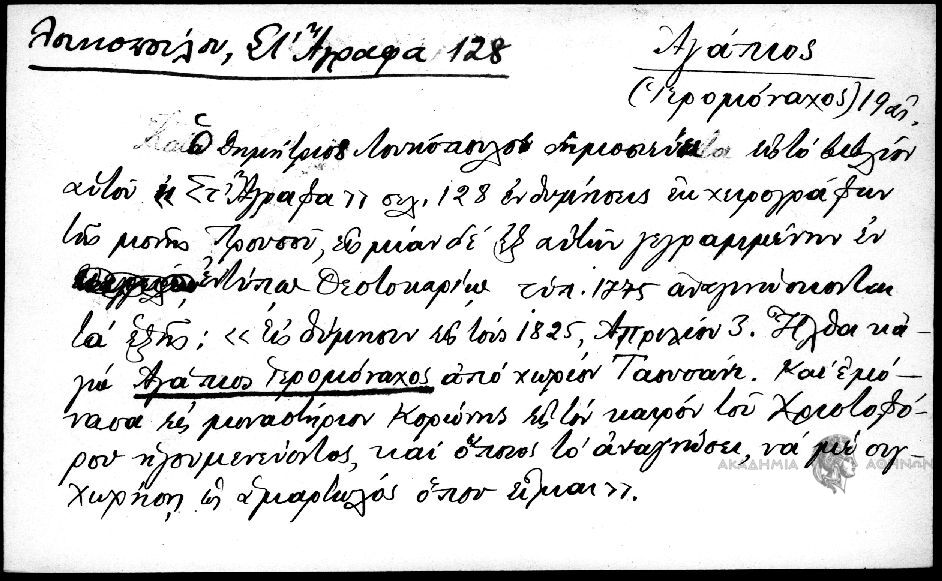 Λουκοπούλου, Στ' Ἄγραφα 128
Ἀγάπιος
(Ἱερομόναχος) 19 αἰ.
Ὁ Δημήτριος Λουκόπουλος δημοσιεύει εἰς τό βιβλίον
αὐτοῦ « Στ' Ἄγραφα » σελ. 128 ἐνθυμήσεις ἐκ χειρογράφων
τῆς μονῆς Προυσοῦ, εἰς μίαν δέ ἐξ αὐτῶν γεγραμμένην ἐν
ἐντύπῳ Θεοτοκαρίῳ τύπ. 1775 ἀναγινώσκονται
τά ἑξῆς: « Εἰς ἐνθύμησιν εἰς τούς 1825, Ἀπριλίου 3. Ἦλθα κἀ-
γώ Ἀγάπιος Ἱερομόναχος ἀπό χωρίον Ταουσάνι. Καί ἐμό-
νασα εἰς μοναστήριον Κορώνης εἰς τόν καιρόν τοῦ Χριστοφό-
ρου ἡγουμενεύοντος, καί ὅποιος τό ἀναγνώσει, νά μέ συγ-
χωρήσῃ ὡς ἁμαρτωλός ὅπου εἶμαι ».
ΑΚΑΔΗΜΙΑ ΑΘΗΝΩΝ